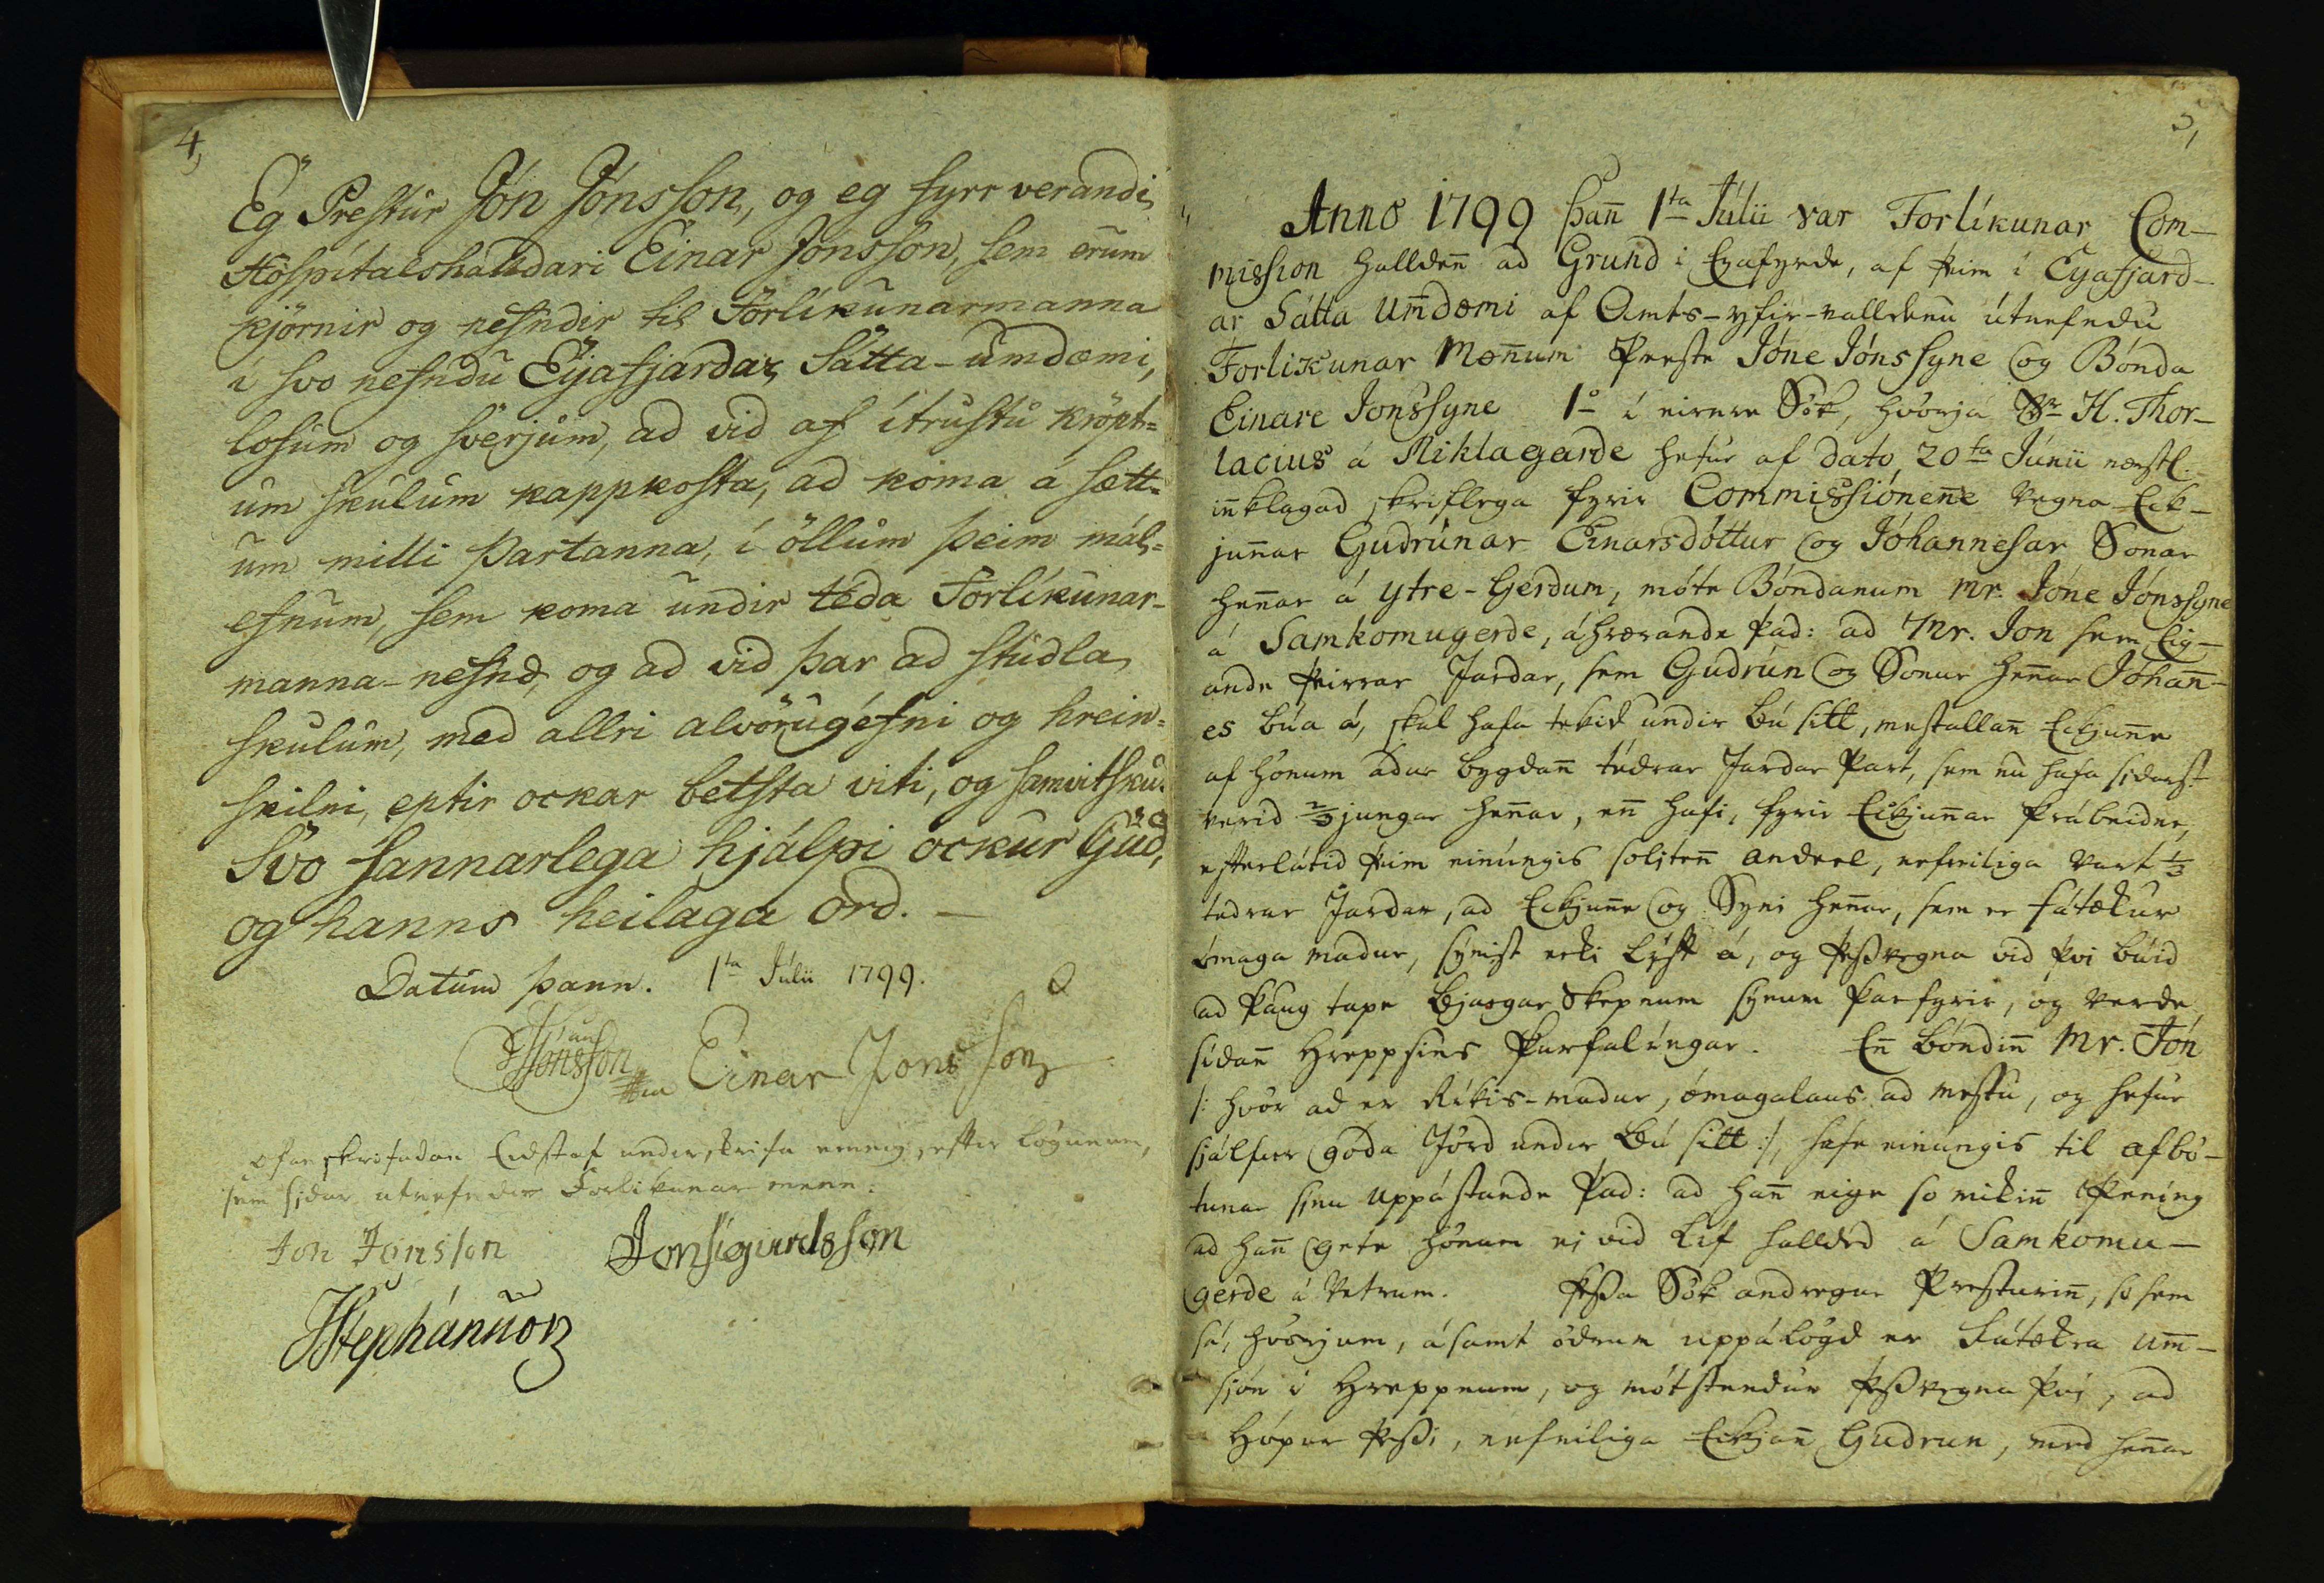 4,
Eg Prestur Jón Jónsson, og eg fyrr verandi
Hospítalshalldari Einar Jónsson, sem erum
kjörnir og nefndir til Forlíkunarmanna
í svo nefndu Eyafjardar Sátta-umdæmi,
lofum og sverjum, ad vid af ítrustu kröpt=
um skulum kappkosta, ad koma á sætt=
um milli Partanna, í öllum þeim mál=
efnum, sem koma undir téda Forlíkunar-
manna-nefnd, og ad vid þar ad studla
skulum, med allri alvörugéfni og hrein=
skilni, eptir ockar betsta viti, og samvitsku.
Svo sannarlega hjálpi ockur Gud,
og hanns heilaga ord. —
Datum þann. 1ta Júlii 1799.
Jónsson Einar Jons Son
Ofanskrifadan Eidstaf underskrifa einnig, efter lögunum,
sem sidar utnefnder Forlikunar menn.
Jon Jónsson Jon Sigurdsson
JStephánsson
5,
Anno 1799 þann 1ta Júlii var Forlíkunar Com-
mission halldenn ad Grund i Eyafyrde, af þeim i Eyafjard-
ar Sátta Umdæmi af Amts-yfir-valldenu útnefndu
Forlikunar Mönnum Preste Jóne Jónssyne og Bónda
Einare Jonssyne 1o i eirnre Sök, hvörja Sr H. Thor-
lacius á Miklagarde hefur af dato 20ta Júnii næstl.
innklagad skriflega fyrir Commissiónenne vegna Eck-
junnar Gudrúnar Einarsdóttur og Jóhannesar Sonar
hennar á ytre-Gerdum, móte Bóndanum Mr. Jóne Jónssyne
á Samkomugerde, áhrærande þad: ad Mr. Jon sem Eig-
ande þeirrar Jardar, sem Gudrún og Sonur hennar Jóhann-
es búa á, skal hafa tekid undir bú sitt, mestallann Eckjunne
af hönum ádur bygdann tédrar Jardar Part, sem nú hafa sidarst
verid 2/3 jungar hennar, enn hafi, fyrir Eckjunnar þrábeidne,
efterlátid þeim einúngis solitenn andeel, nefniliga vart 1/3
tedrar Jardar, ad Eckjunne og Syni hennar, sem er fátækur
ómaga madur, synist ecki líft á, og þessvegna vid því búid
ad þaug tape bjargar Skepnum sýnum þarfyrir, og verde
sídann Hreppsins þurfalingar. En bóndinn Mr. Jón
/: hvör ad er Rikis-madur, ómagalaus ad mestu, og hefur
sjálfur góda Jörd under bú sitt :/, hafe einúngis til afbö-
tunar sinn uppástande þad: ad hann eige so mikinn Pening
ad hann gete hönum ei vid Líf halldid á Samkomu-
gerde á Vetrum. Þessa Sök andregur Presturinn, so sem
sá, hvörjum, ásamt ödrum uppálögd er Fátækra um-
sjón i Hreppnum, og mótstendur þessvegna því, ad
Hópur þessi, nefniliga Eckjan Gudrun, med hennar